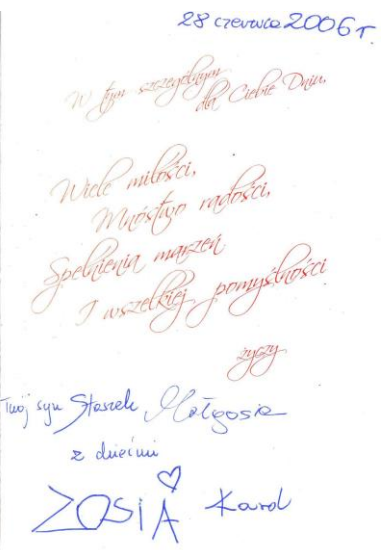 28 czerwca 2006 r.
W tym szczególnym
dla Ciebie Dniu,
Wiele miłości,
Mnóstwo radości,
Spełnienia marzeń
I wszelkiej pomyślności
życzy
Twój syn Staszek Małgosia
z dziećmi
ZOSIA Karol